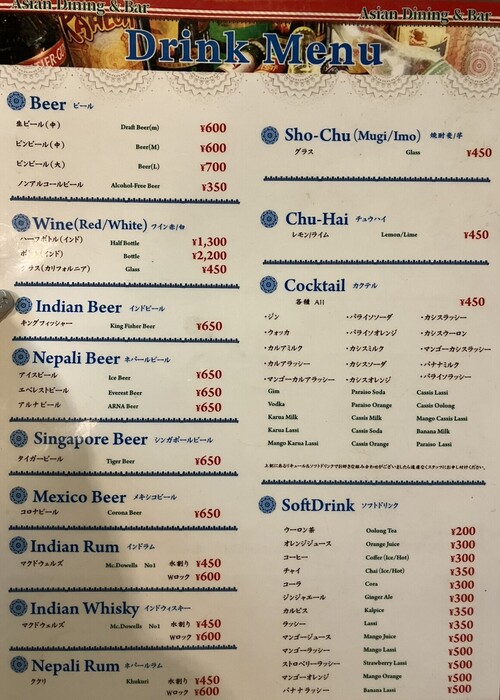 Asian Dining & Bar
Asian Dining & Bar
Drink Menu
Beer ビール
生ビール(中) Draft Beer(m) ¥600
ビンビール(中) Beer(M) ¥600
ビンビール(大) Beer(L) ¥700
ノンアルコールビール Alcohol-Free Beer ¥350
Wine(Red/White) ワイン赤/白
ハーフボトル(インド) Half Bottle ¥1,300
(インド) Bottle ¥2,200
グラス(カリフォルニア) Glass ¥450
Indian Beer インドビール
キングフィッシャー King Fisher Beer ¥650
Nepali Beer ネパールビール
アイスビール Ice Beer ¥650
エベレストビール Everest Beer ¥650
アルナビール ARNA Beer ¥650
Singapore Beer シンガポールビール
タイガービール Tiger Beer ¥650
Mexico Beer メキシコビール
コロナビール Corona Beer ¥650
Indian Rum インドラム
マクドウェルズ Mc.Dowells No1 水割り ¥450
Wロック ¥600
Indian Whisky インドウィスキー
マクドウェルズ Mc.Dowells No1 水割り ¥450
Wロック ¥600
Nepali Rum ネパールラム
ククリ Khukuri 水割り ¥450
Wロック ¥600
Sho-Chu(Mugi/Imo) 焼酎麦/芋
グラス Glass ¥450
Chu-Hai チュウハイ
レモン/ライム Lemon/Lime ¥450
Cocktail カクテル
各種 All ¥450
・ジン ・パライソソーダ ・カシスラッシー
・ウォッカ ・パライソオレンジ ・カシスウーロン
・カルアミルク ・カシスミルク ・マンゴーカシスラッシー
・カルアラッシー ・カシスソーダ ・バナナミルク
・マンゴーカルアラッシー ・カシスオレンジ ・パライソラッシー
Gim Paraiso Soda Cassis Lassi
Vodka Paraiso Orange Cassis Oolong
Karua Milk Cassis Milk Mango Cassis Lassi
Karua Lassi Cassis Soda Banana Milk
Mango Karua Lassi Cassis Orange Paraiso Lassi
SoftDrink ソフトドリンク
ウーロン茶 Oolong Tea ¥200
オレンジジュース Orange Juice ¥300
コーヒー Coffer (Ice/Hot) ¥300
チャイ Chai (Ice/Hot) ¥350
コーラ Cora ¥300
ジンジャエール Ginger Ale ¥300
カルピス Kalpice ¥350
ラッシー Lassi ¥350
マンゴージュース Mango Juice ¥500
マンゴーラッシー Mango Lassi ¥500
ストロベリーラッシー Strawberry Lassi ¥500
マンゴーオレンジ Mango Orange ¥500
バナナラッシー Banana Lassi ¥500